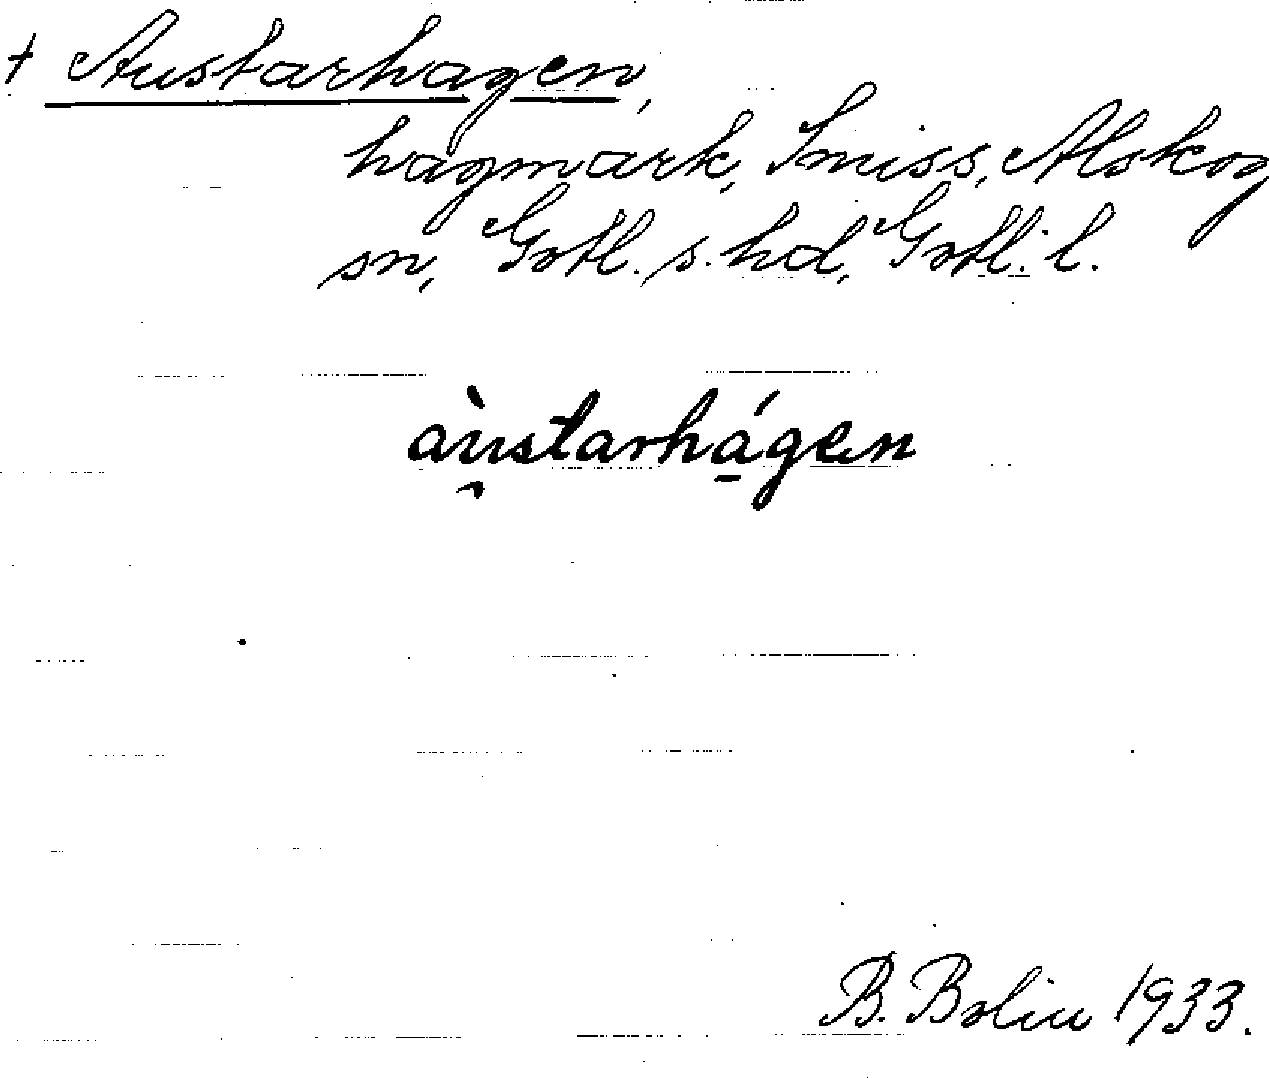 † Austarhagen,
hagmark, Smiss, Alskog
sn, Gotl. s. hd, Gotl. l.
aù̯starhá̱gen
B. Bolin 1933.